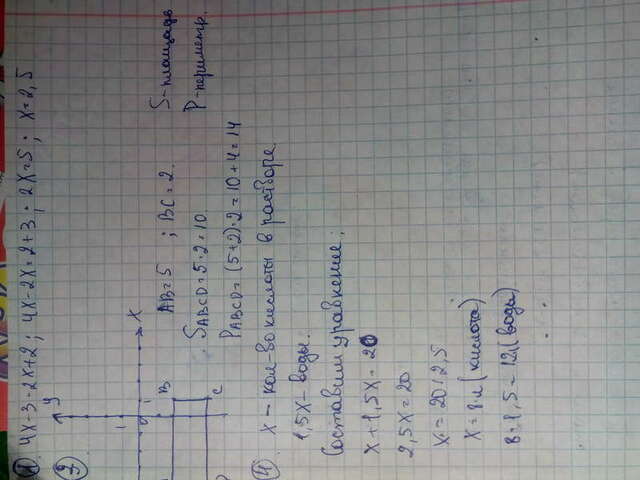 1. 4x-3=2x+2; 4x-2x=2+3; 2x=5; x=2,5
2
y
1
0 1 x
B
C
AB=5 ; BC=2. S-площадь
SABCD=5·2=10. P-периметр.
PABCD=(5+2)·2=10+4=14
4. x - кол-во кислоты в растворе.
1,5x- воды.
Составим уравнение:
x+1,5x=20
2,5x=20
x=20:2,5
x=8л(кислота)
8·1,5=12л(вода)